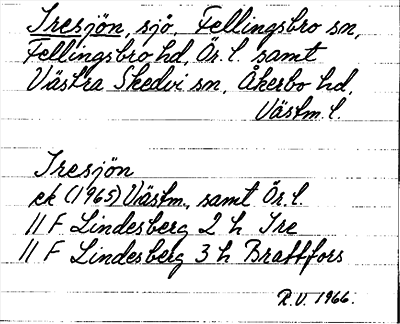 Iresjön, sjö, Fellingsbro sn,
Fellingsbro hd, Ör. l. samt
Västra Skedvi sn, Åkerbo hd,
Västm. l.
Iresjön
ek (1965) Västm., samt Ör. l.
11 F Lindesberg 2 h Ire
11 F Lindesberg 3 h Brattfors
R.V. 1966.